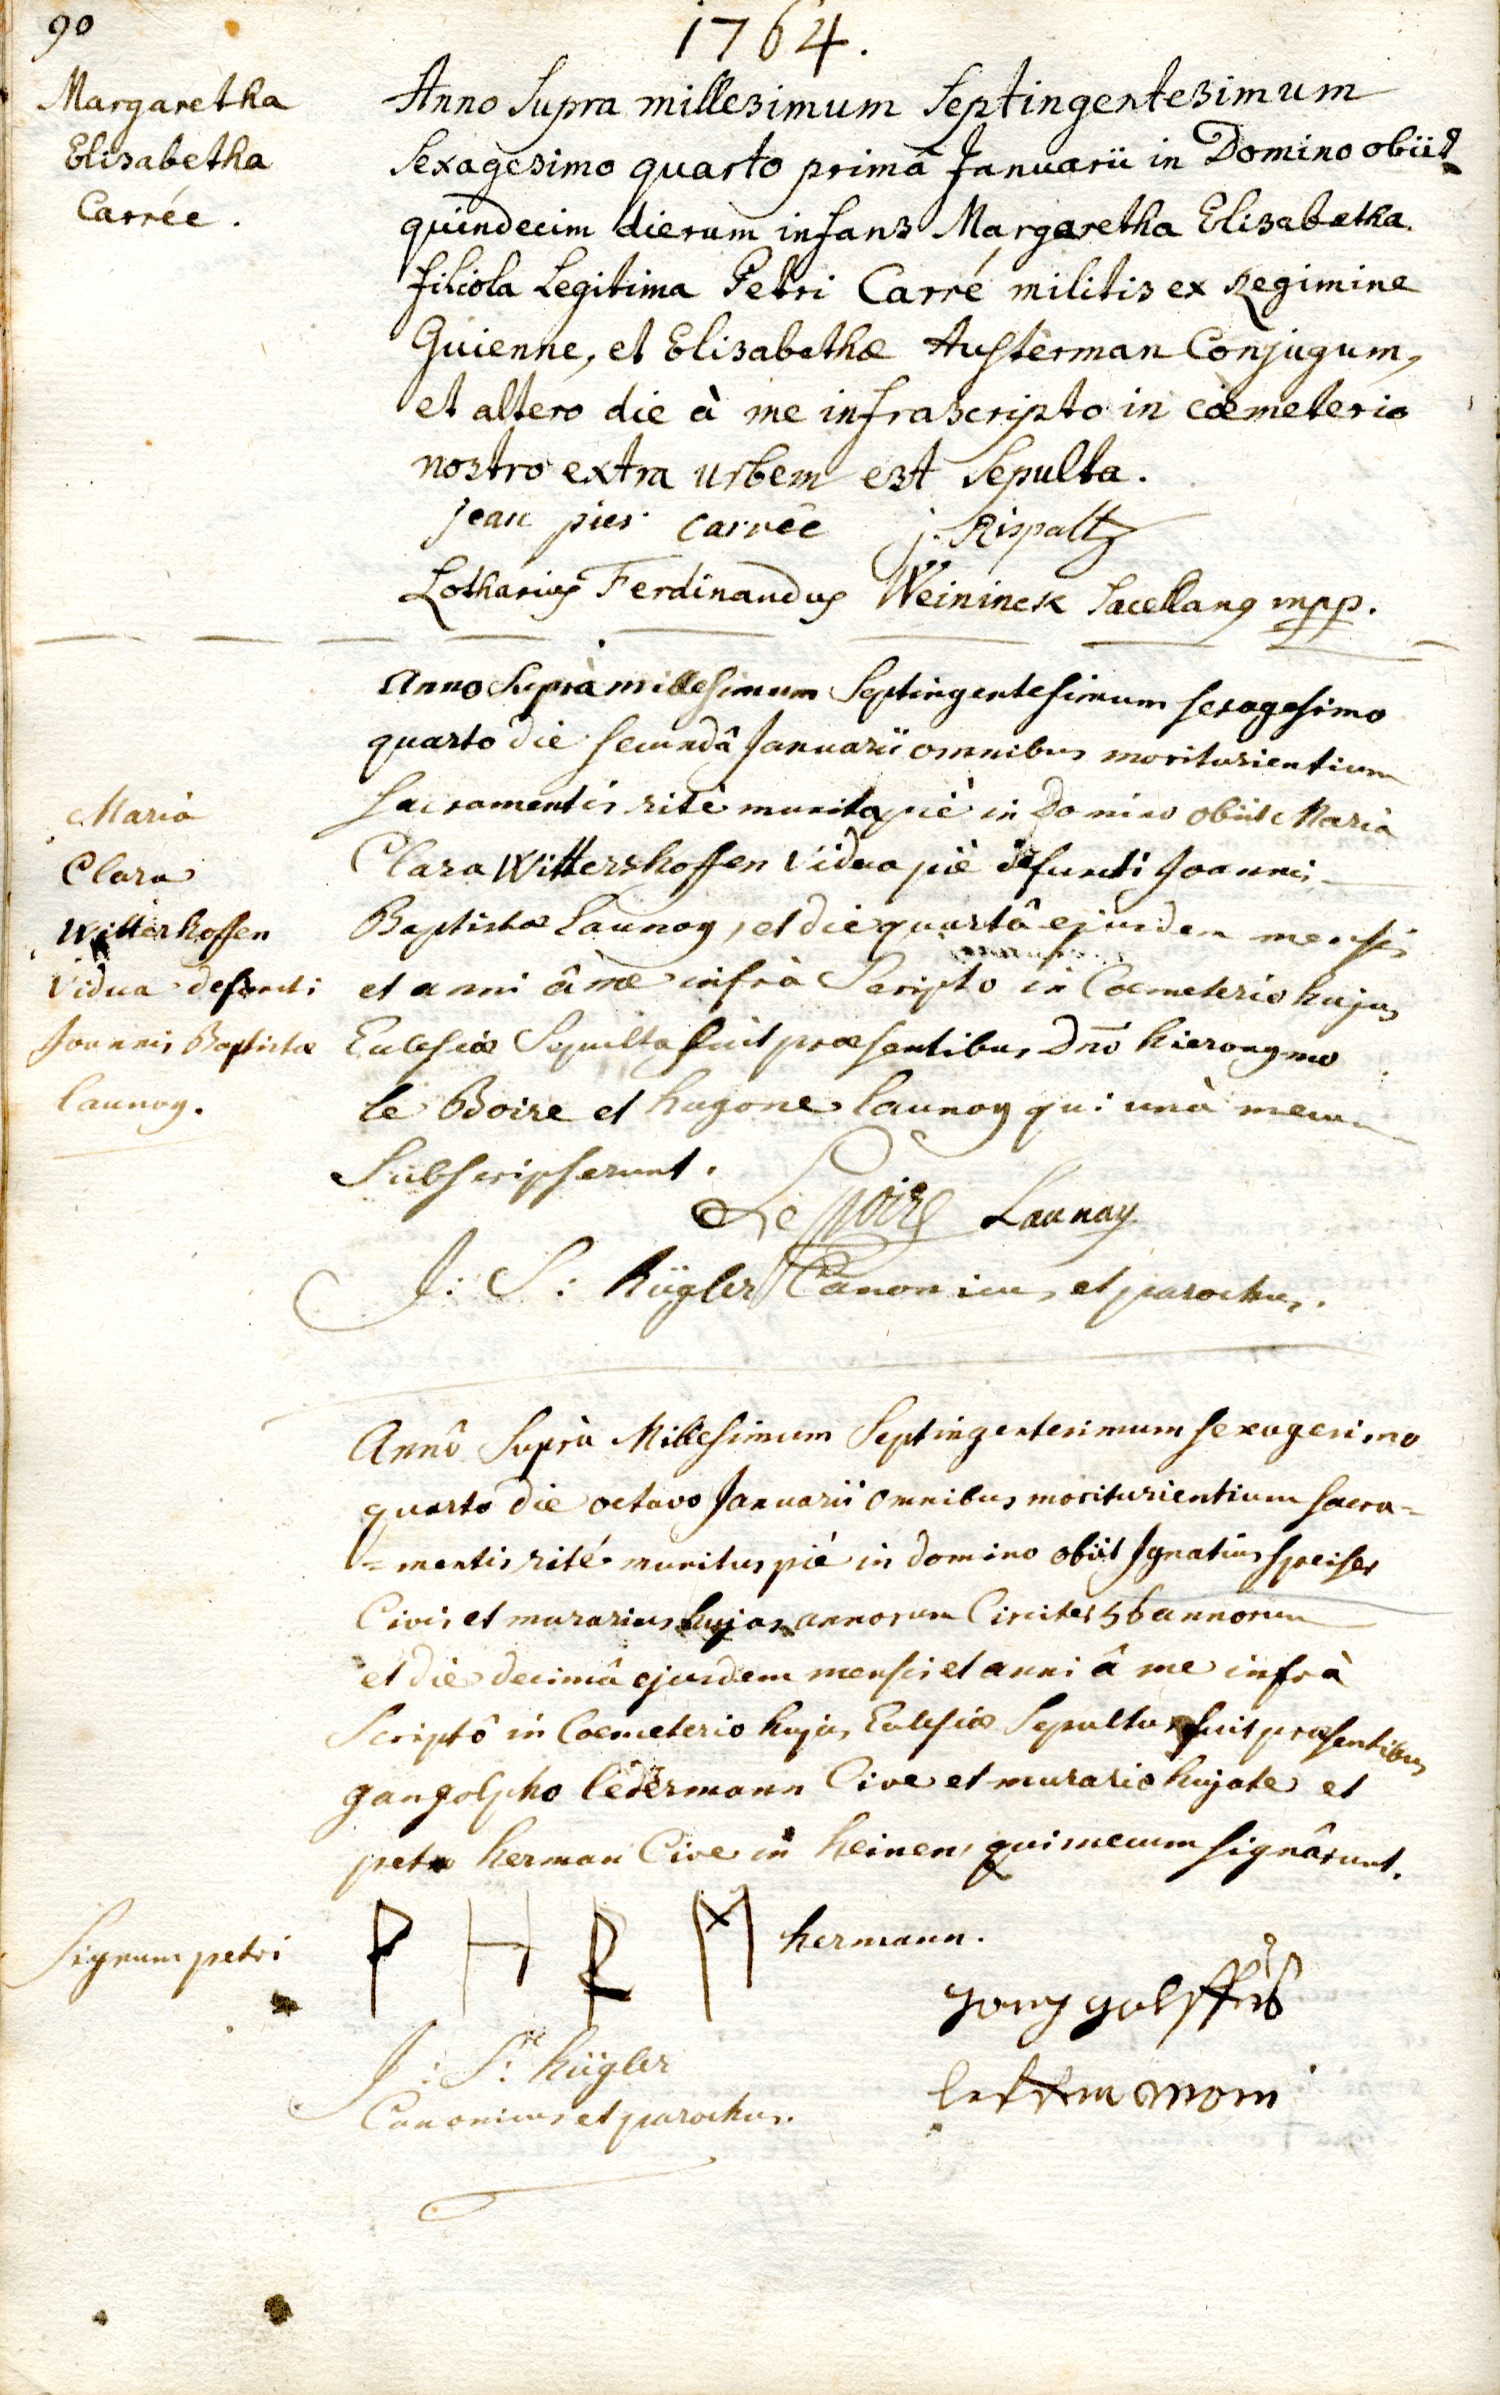 90
1764.
Margaretha
Elisabetha
Carrée.
Anno Supra millesimum Septingentesimum
Sexagesimo quarto primâ Januarii in Domino obiit
quindecim dierum infans Margaretha Elisabetha
filiola Legitima Petri Carré militis ex Regimine
Guienne, et Elisabethæ Austerman Conjugum,
et altero die à me infrascripto in cœmeterio
nostro extra urbem est Sepulta.
Jean pier Carrée j. Rispaltz
Lotharius Ferdinandus Weininck Sacellanus mpp.
Maria
Clara
Witterhoffen
Vidua defuncti
Joannis Baptistæ
launoy.
Anno Suprà millesimum Septingentesimum sexagesimo
quarto die secundâ Januarii omnibus moriturientium
sacramentis ritè munita piè in Domino obiit Maria
Clara Wittershoffen Vidua piè defuncti Joannis
Baptistæ Launoy, et die quartâ ejusdem mensis
et anni â me infrà Scripto in Coemeterio hujus
Eccelsiæ Sepulta fuit præsentibus Dnō hieronymo
le Boire et hugone launoy qui unà mecum
Subscripserunt.
Le Poire Launay
J: S: Kügler Canonicus et parochus.
Annô Suprà Millesimum Septingentesimum sexagesimo
quarto die octavo Januarii omnibus moriturientium sacra=
=mentis rité munitus piè in domino obiit Ignatius Speiser
Civis et murarius hujas annorum Circiter 56 annorum
et die decimâ ejusdem mensis et anni â me infrà
Scriptô in Coemeterio hujus Ecclesiæ Sepultus fuit præsentibus
gangolpho ledermann Cive et murario hujate et
petro herman Cive in heinen, qui mecum signârunt.
Signum petri P H R M hermann.
J: S: Kügler
Canonicus et parochus.